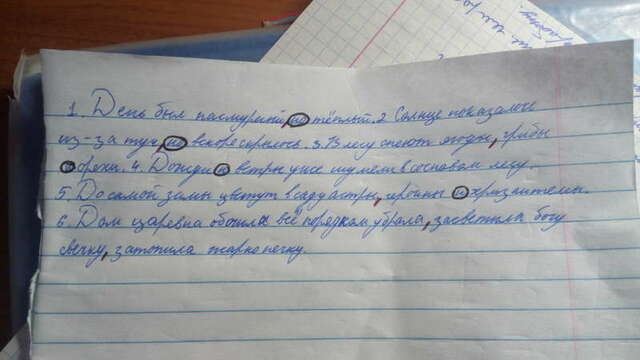 1. День был пасмурный, но тёплый. 2 Солнце показалось
из-за туч, но вскоре скрылось. 3. В лесу спеют ягоды, грибы
и орехи. 4. Дожди и ветры уже шумели в сосновом лесу.
5. До самой зимы цветут в саду астры, георгины и хризантемы.
6. Дом царевна обошла всё порядком убрала, засветила богу
свечку, затопила жарко печку.